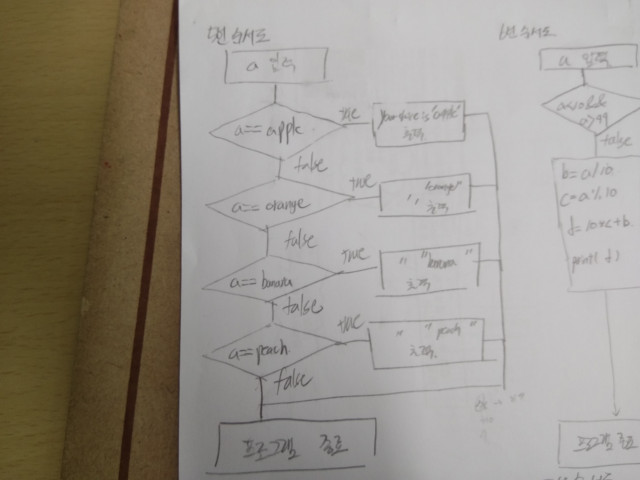 5번 순서도
a 입력
a == apple
true
Your choice is "apple"
출력
false
a == orange
true
" "orange"
출력
false
a == banana
true
" "banana"
출력
false
a == peach
true
" "peach"
출력
false
프로그램 종료
6번 순서도
a 입력
a>99
false
b = a/10
c = a%10
f=10*c+b
print( f)
프로그램 종료